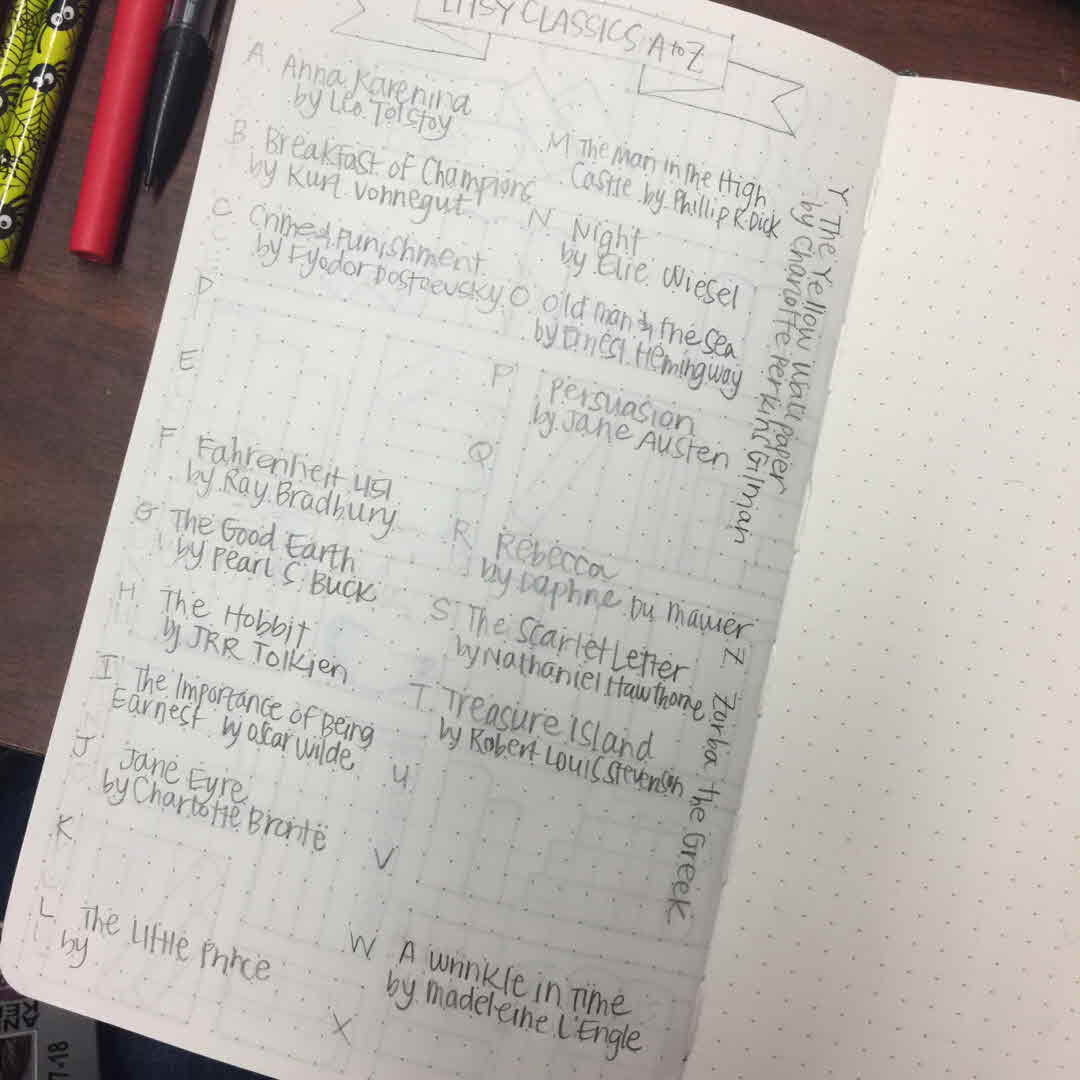 LITSY CLASSICS A to Z
A Anna Karenina
by Leo Tolstoy
B Breakfast of Champions
by Kurt Vonnegut
C Crime & Punishment
by Fyodor Dostoevsky
D
E
F Fahrenheit 451
by Ray Bradbury
G The Good Earth
by Pearl S. Buck
H The Hobbit
by JRR Tolkien
I The Importance of Being
Earnest by Oscar Wilde
J Jane Eyre
by Charlotte Brontë
K
L The Little Prince
by
M The Man in the High
Castle by Phillip K Dick
N Night
by Elie Wiesel
O Old Man & the Sea
by Ernest Hemingway
P Persuasion
by Jane Austen
Q
R Rebecca
by Daphne Du Mauier
S The Scarlet Letter
by Nathaniel Hawthorne
T Treasure Island
by Robert Louis Stevenson
U
V
W A Wrinkle in Time
by Madeleine L'Engle
X
Y The Yellow Wall paper
by Charlotte Perkins Gilman
Z Zorba the Greek
7-18